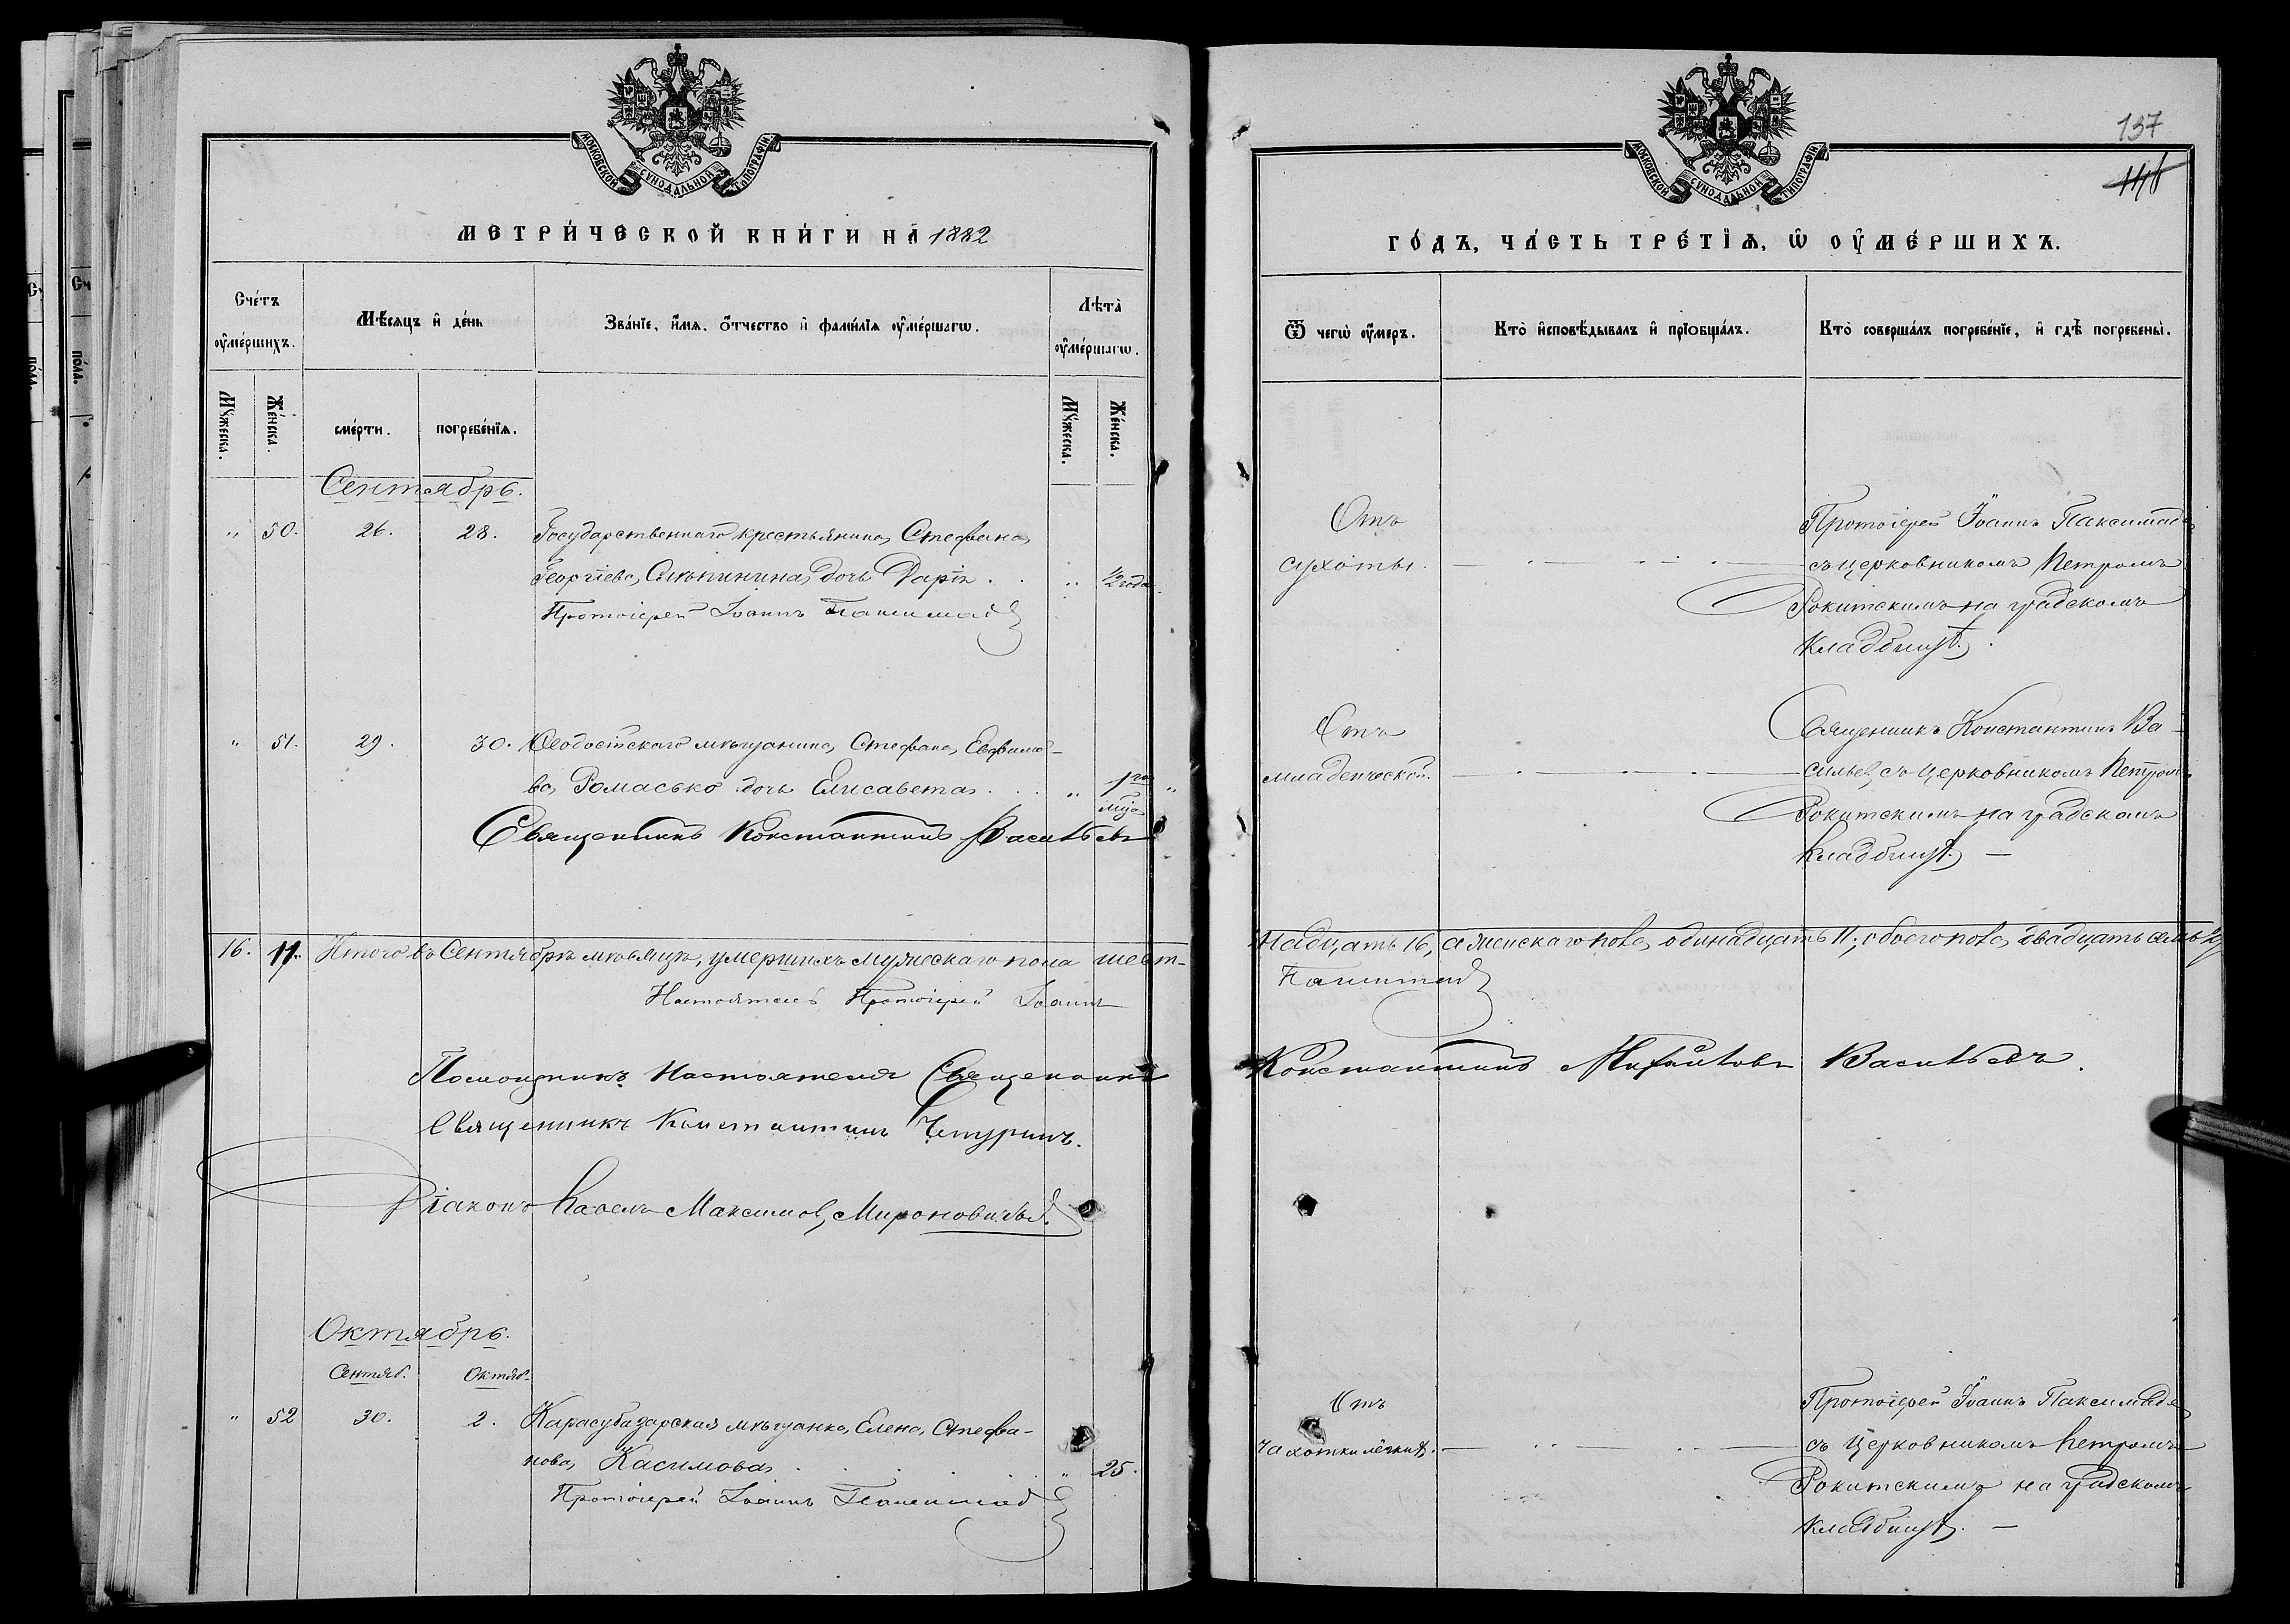 МОСКОВСКОЙ СѴНОДАЛЬНОЙ ТИПОГРАФІИ.
МЕТРИ́ЧЕСКОЙ КНИ́ГИ НА 1882
Сче́тъ оу҆ме́ршихъ.
Мѣ́сяцъ и҆ де́нь
Зва́нїе, и҆́мя, ѻ҆́тчество и҆ фами́лїя оу҆ме́ршагѡ.
Лѣта̀ оу҆ме́ршагѡ.
Мꙋ́жеска.
Же́нска.
сме́рти.
погребе́нїѧ.
Мꙋ́жеска.
Же́нска.
Сентябрь.
" 50. 26. 28. Государственнаго крестьянина Стефана
Георгіева дочь Дарія . . " ½ года
Протоіерей Іоаннъ
" 51. 29. 30. Ѳеодосійскаго мѣщанина Стефана Евфимо-
ва Ромасько дочь Елисавета . . . "
Священникъ Константинъ Васильевъ
16. 11. Итого въ Сентябрѣ мѣсяцѣ, умершихъ мужескаго пола шест-
Настоятель Протоіерей Іоаннъ
Помощникъ Настоятеля Священникъ
Священникъ Константинъ Чепуринъ.
Діаконъ Павелъ Максимов. Мироновичъ.
Октябрь.
Сентяб. Октяб.
" 52 30. 2. Карасубазарская мѣщанка Елена Стефа-
нова Касимова . . . . . " 25.
Протоіерей Іоаннъ
137
146
МОСКОВСКОЙ СѴНОДАЛЬНОЙ ТИПОГРАФІИ.
ГО́ДЪ, ЧА́СТЬ ТРЕ́ТЇѦ, Ѡ҆ ОУ҆МЕ́РШИХЪ.
Ѿ чегѡ̀ оу҆́меръ.
Кто̀ и҆сповѣ́дывалъ и҆ прїобща́лъ.
Кто̀ соверша́лъ погребе́нїе, и҆ гдѣ̀ погребены̀.
Отъ
сухоты.
Протоіерей Іоаннъ Паксимаде
съ церковникомъ Петромъ
Рокитскимъ на градскомъ
кладбищѣ.
Отъ
младенческой.
Священникъ Константинъ Ва-
сильев, съ церковникомъ Петромъ
Рокитскимъ на градскомъ
кладбищѣ. —
надцать 16, а женскаго пола одинадцать 11; обоего пола двадцать семь 27
Константинъ Михайловъ Васильевъ.
Отъ
чахотки лёгкихъ.
Протоіерей Іоаннъ Паксимаде
съ церковникомъ Петромъ
Рокитскимъ на градскомъ
кладбищѣ. —